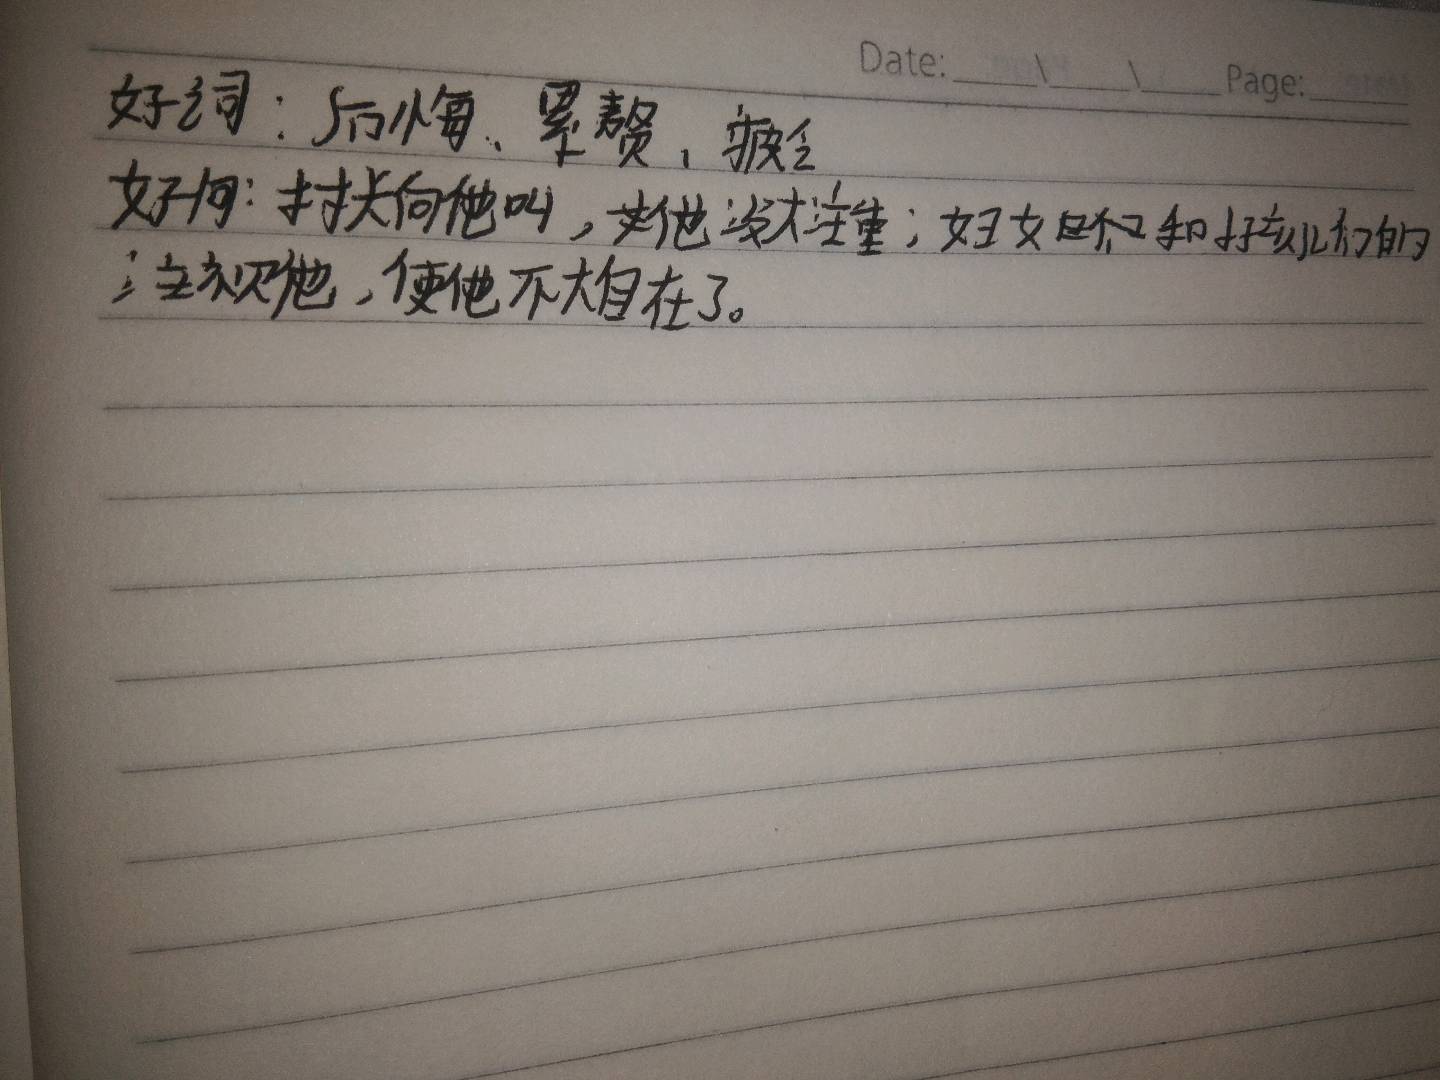 Date: ___\___\___ Page: ___
好词：后悔、累赘，疲乏
好句：村长向他叫，他没大注重；妇女们和好孩儿们的
注视他，使他不大自在了。